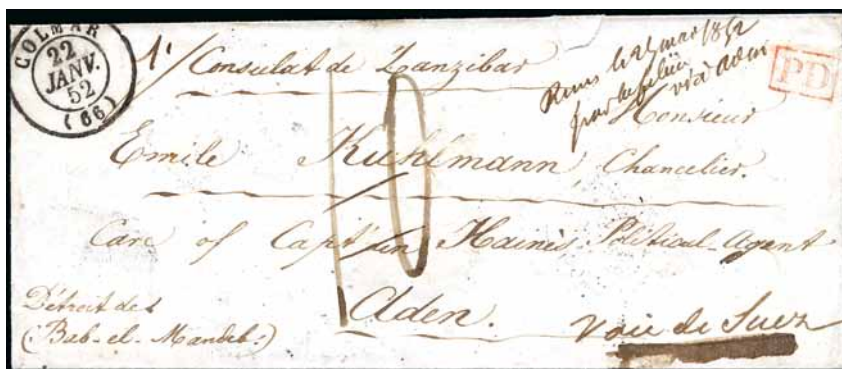 COLMAR
22
JANV.
52
(66)
1º/ Consulat de Zanzibar
mars 1852
par
via Aden
PD
Monsieur
Emile Kuhlmann, Chancelier.
10
Care of Capt'in Hainis, Political-Agent
Aden.
Détroit des
(Bab-el-Mandeb:)
Voie de Suez